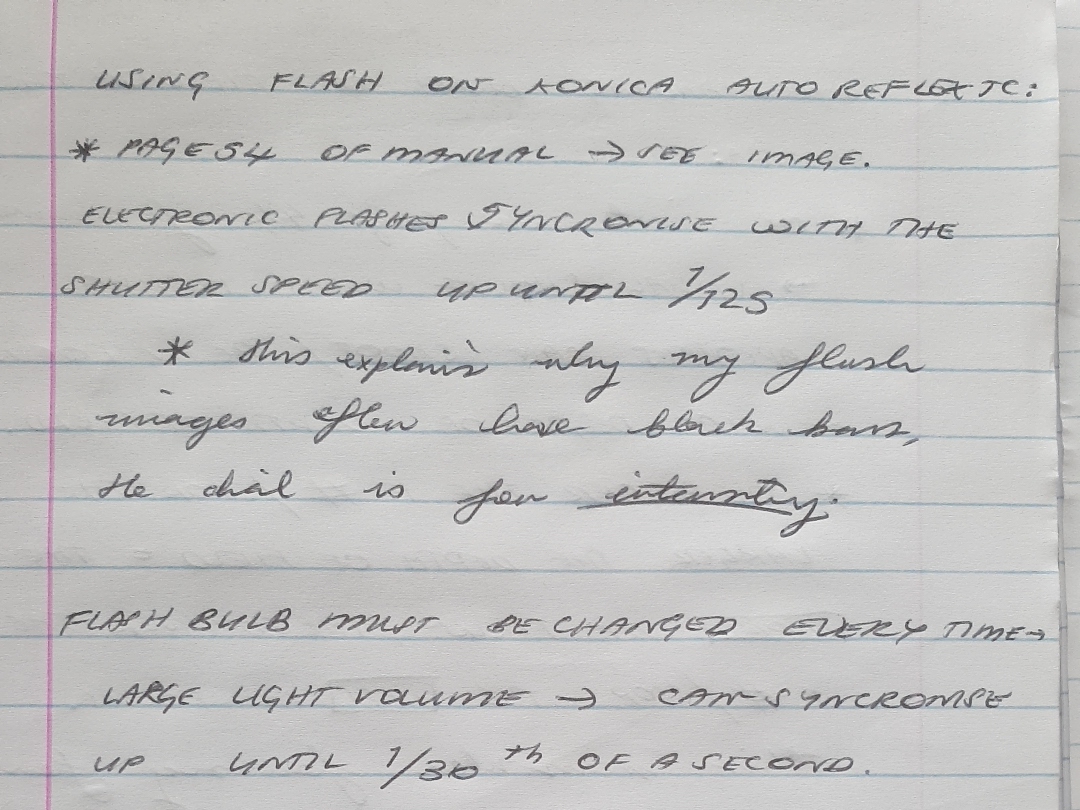 USING FLASH ON KONICA AUTOREFLEX TC:
* PAGE 54 OF MANUAL → SEE IMAGE.
ELECTRONIC FLASHES SYNCRONISE WITH THE
SHUTTER SPEED UP UNTIL 1/125
* this explains why my flash
images often have black bars,
the dial is for intensity.
FLASH BULB MUST BE CHANGED EVERY TIME→
LARGE LIGHT VOLUME → CAN SYNCRONISE
UP UNTIL 1/30th OF A SECOND.